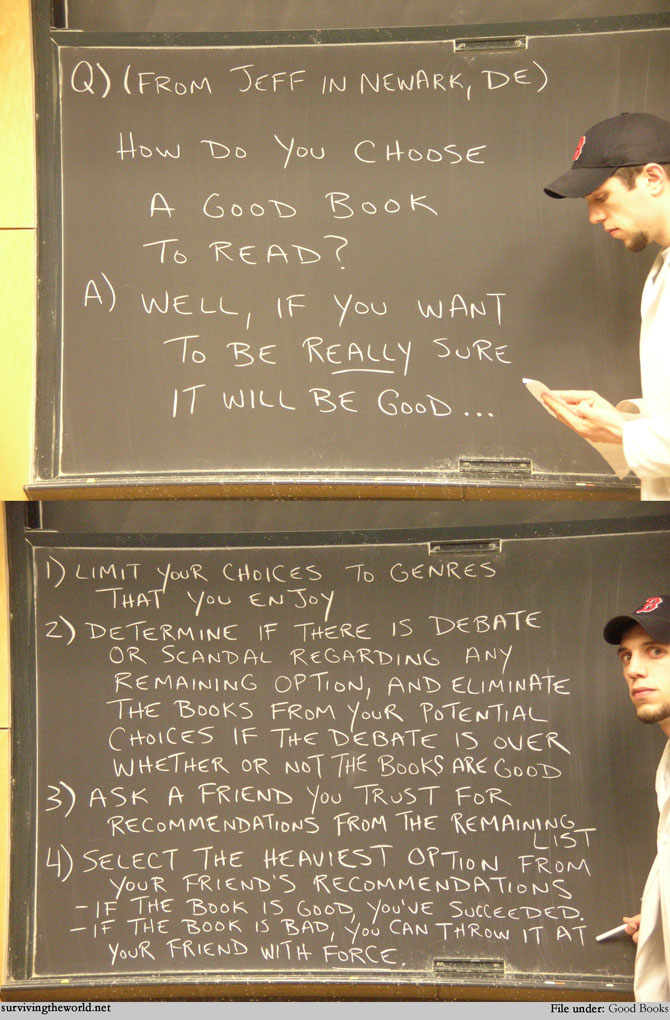 Q) (FROM JEFF IN NEWARK, DE)
HOW DO YOU CHOOSE
A GOOD BOOK
TO READ?
A) WELL, IF YOU WANT
TO BE REALLY SURE
IT WILL BE GOOD...
B
1) LIMIT YOUR CHOICES TO GENRES
THAT YOU ENJOY
2) DETERMINE IF THERE IS DEBATE
OR SCANDAL REGARDING ANY
REMAINING OPTION, AND ELIMINATE
THE BOOKS FROM YOUR POTENTIAL
CHOICES IF THE DEBATE IS OVER
WHETHER OR NOT THE BOOKS ARE GOOD
3) ASK A FRIEND YOU TRUST FOR
RECOMMENDATIONS FROM THE REMAINING
LIST
4) SELECT THE HEAVIEST OPTION FROM
YOUR FRIEND'S RECOMMENDATIONS
- IF THE BOOK IS GOOD, YOU'VE SUCCEEDED.
- IF THE BOOK IS BAD, YOU CAN THROW IT AT
YOUR FRIEND WITH FORCE.
B
survivingtheworld.net
File under: Good Books